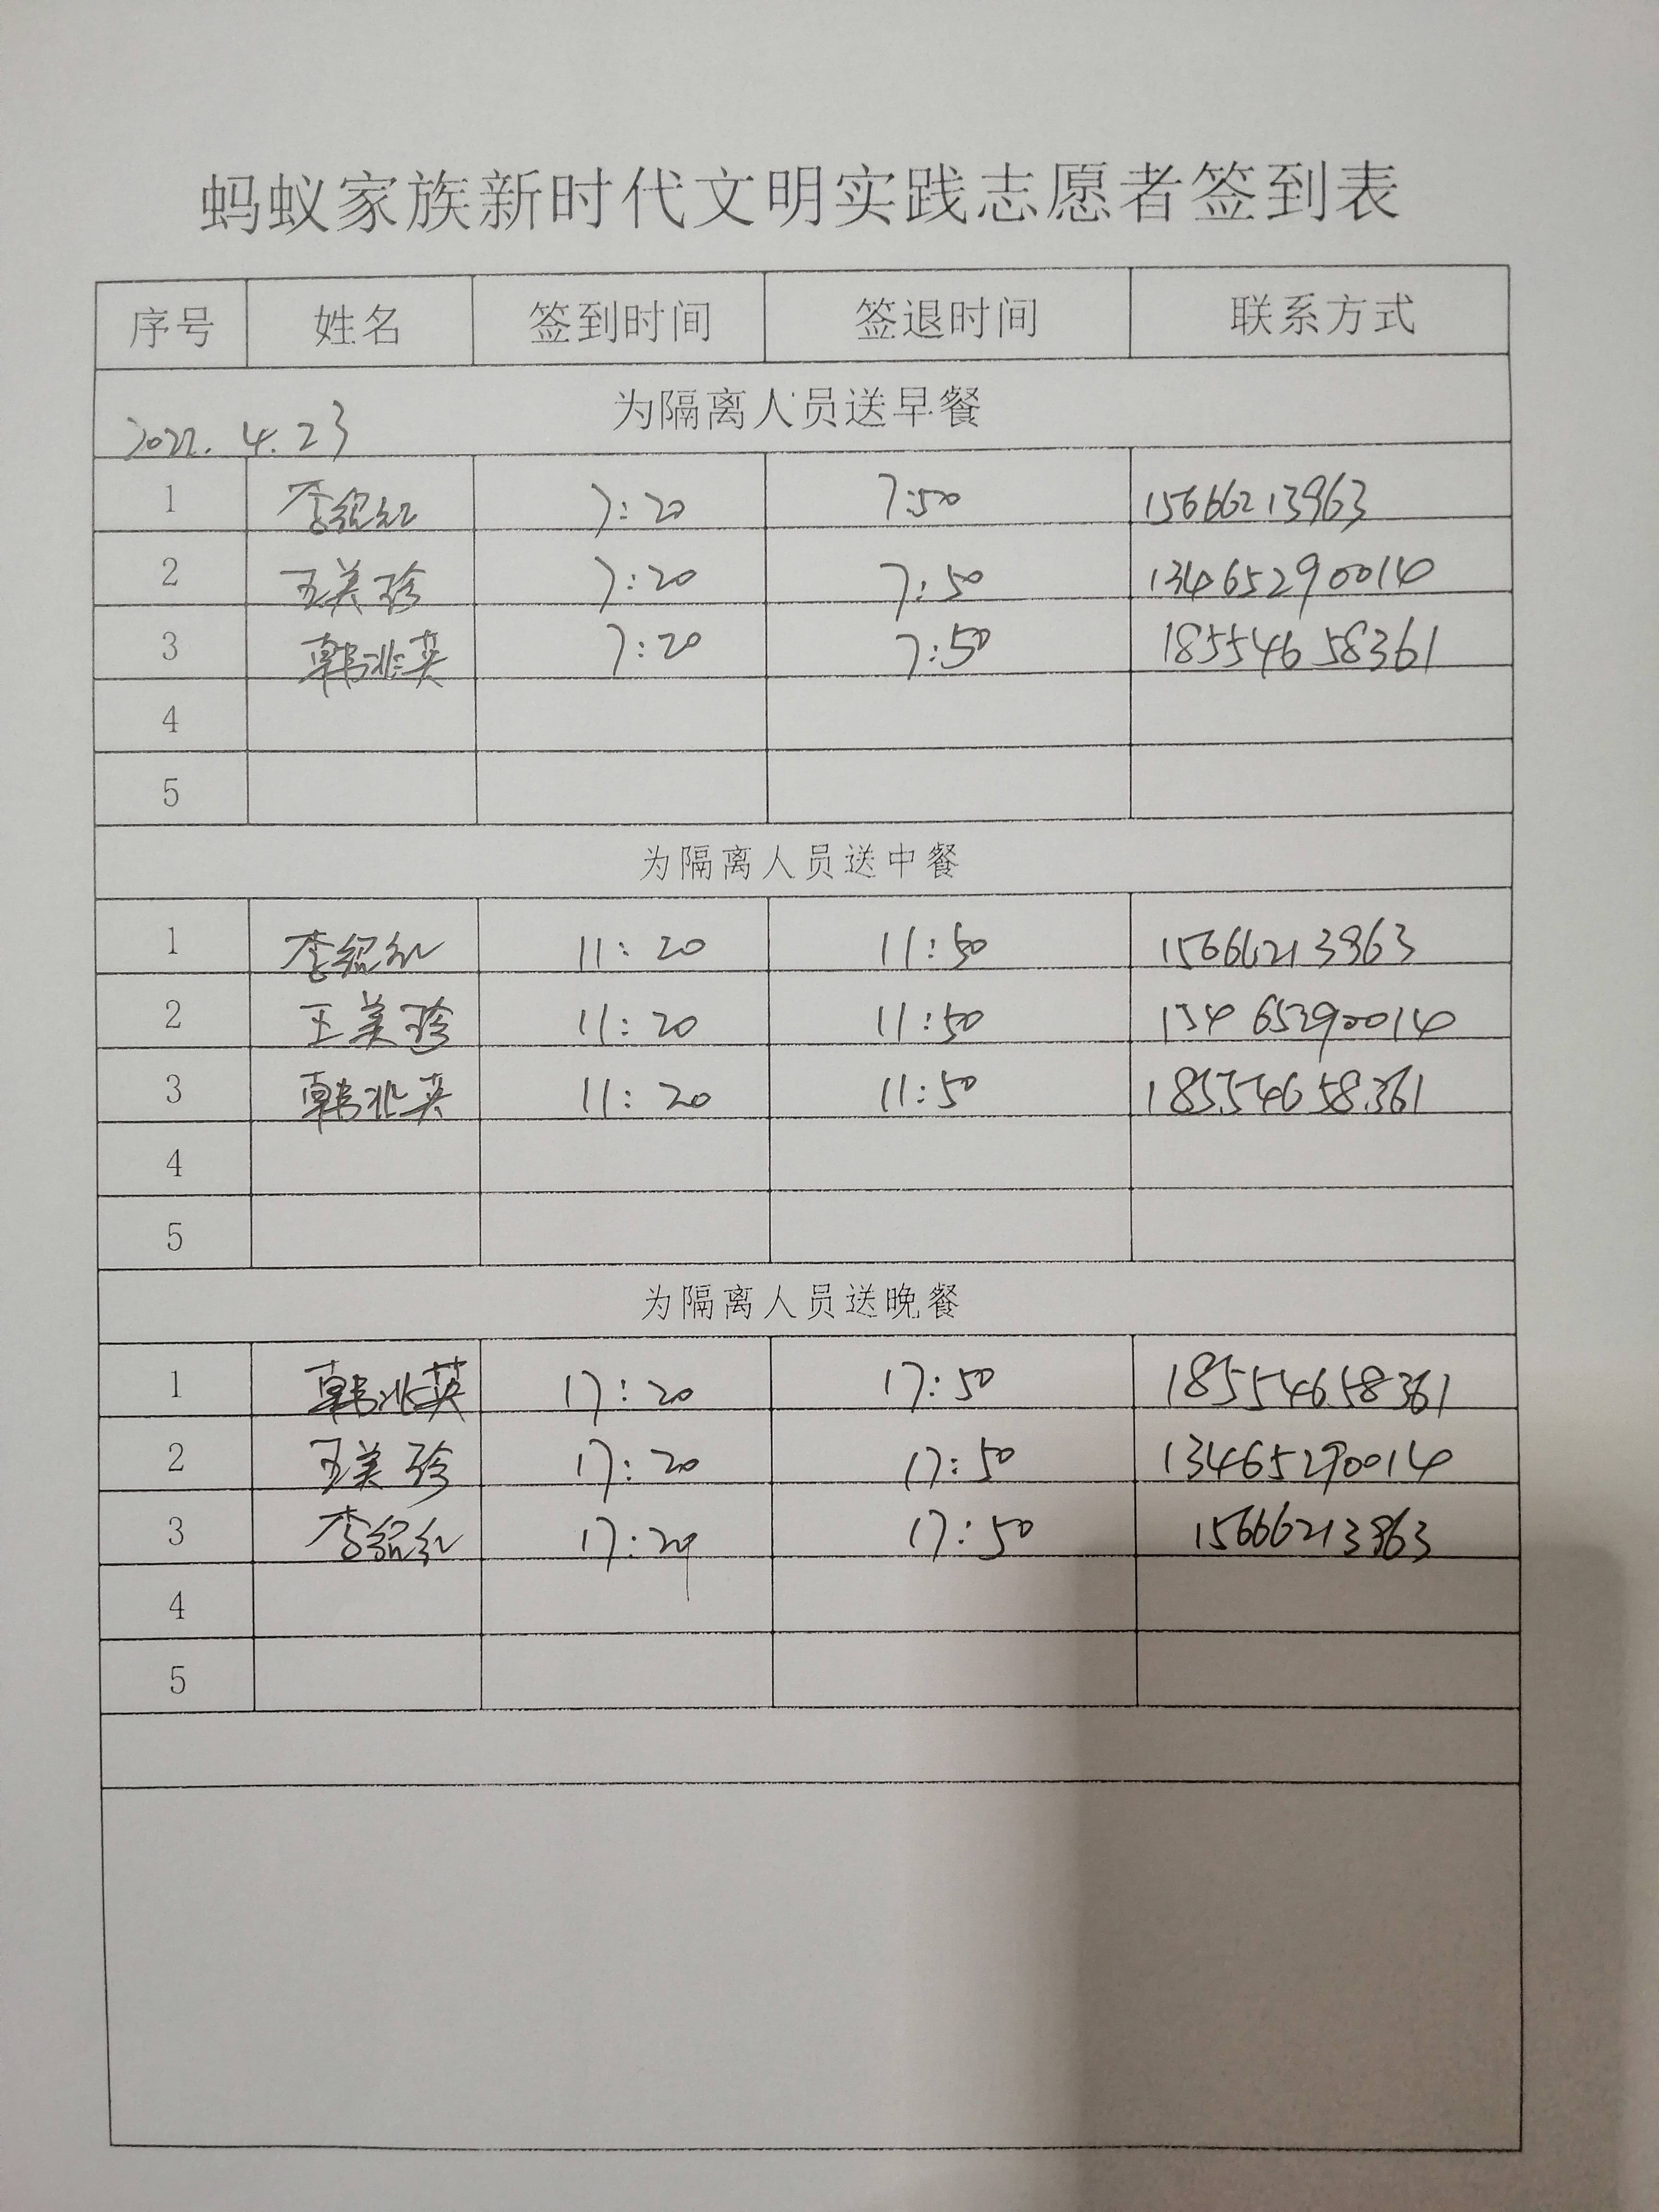 蚂蚁家族新时代文明实践志愿者签到表
序号 姓名 签到时间 签退时间 联系方式
为隔离人员送早餐
2022.4.23
1 李绍红 7:20 7:50 15666213963
2 王美珍 7:20 7:50 13465290014
3 韩兆英 7:20 7:50 18554658361
4
5
为隔离人员送中餐
1 李绍红 11:20 11:50 15666213963
2 王美珍 11:20 11:50 13465290014
3 韩兆英 11:20 11:50 18554658361
4
5
为隔离人员送晚餐
1 韩兆英 17:20 17:50 18554658361
2 王美珍 17:20 17:50 13465290014
3 李绍红 17:20 17:50 15666213963
4
5